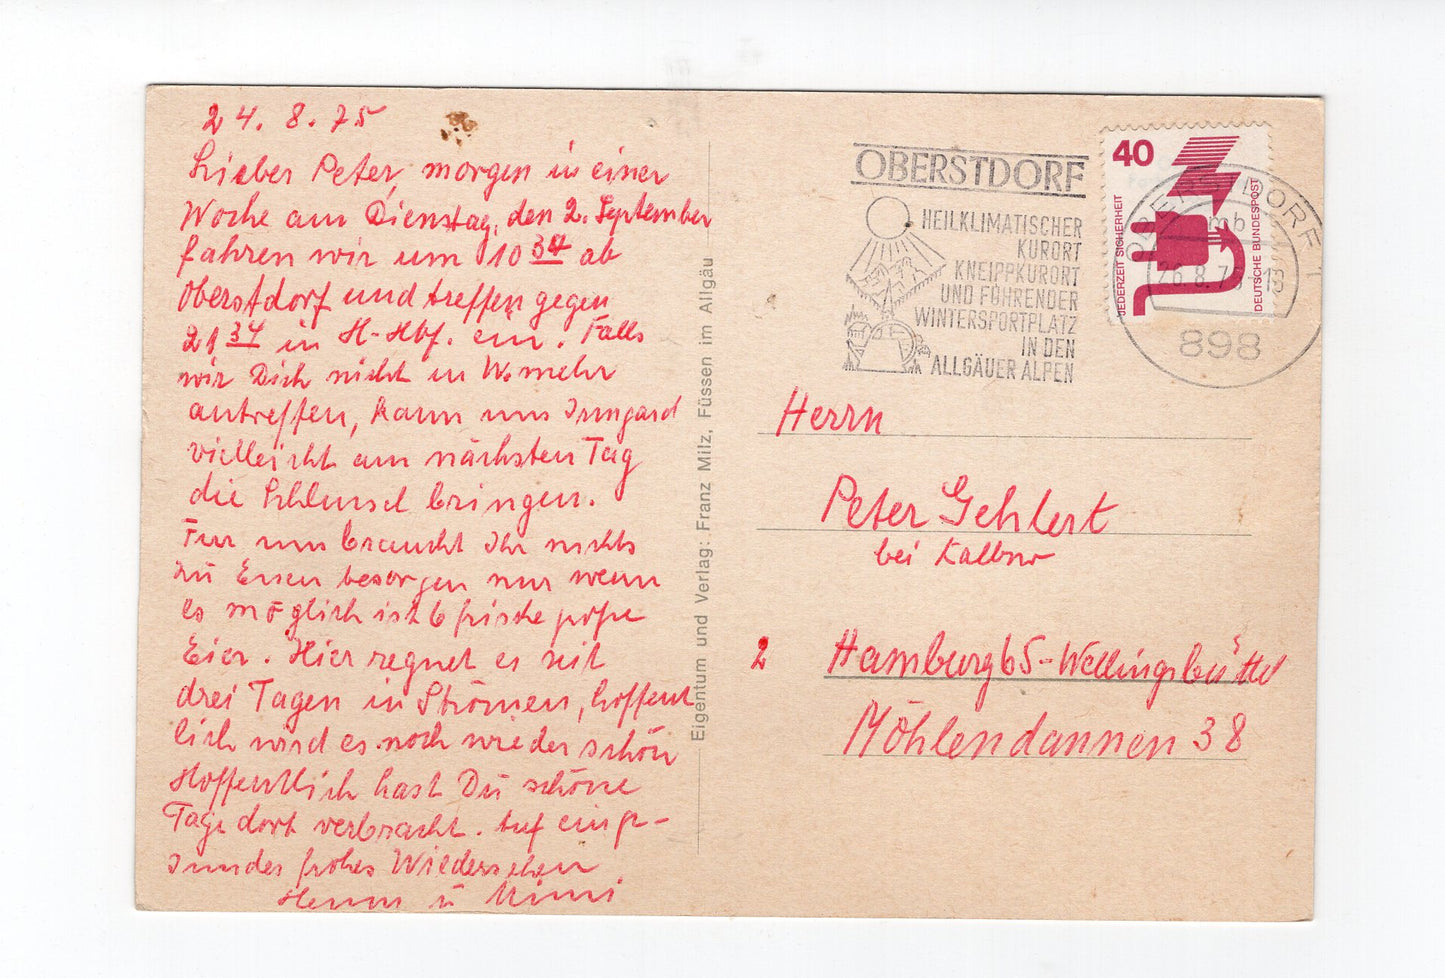 24. 8. 75
Lieber Peter, morgen in einer
Woche am Dienstag, den 2. September
fahren wir um 10 34 ab
Oberstdorf und treffen gegen
21 34 in H-Hbf. ein. Falls
wir Dich nicht in W. mehr
antreffen, kann uns Irmgard
vielleicht am nächsten Tag
die Schlüssel bringen.
Für uns braucht Ihr nichts
zu Essen besorgen nur wenn
es möglich ist 6 frische große
Eier. Hier regnet es seit
drei Tagen in Strömen, hoffent
lich wird es noch wieder schön
Hoffentlich hast Du schöne
Tage dort verbracht. Auf ein g-
sundes frohes Wiedersehen
u Mimi
Eigentum und Verlag: Franz Milz, Füssen im Allgäu
OBERSTDORF
HEILKLIMATISCHER
KURORT
KNEIPPKURORT
UND FÜHRENDER
WINTERSPORTPLATZ
IN DEN
ALLGÄUER ALPEN
40
JEDERZEIT SICHERHEIT
DEUTSCHE BUNDESPOST
OBERSTDORF 1
mb
26.8.75-18
898
Herrn
Peter Gehlert
bei
2 Hamburg 65-Wellingsbüttel
Möhlendannen 38